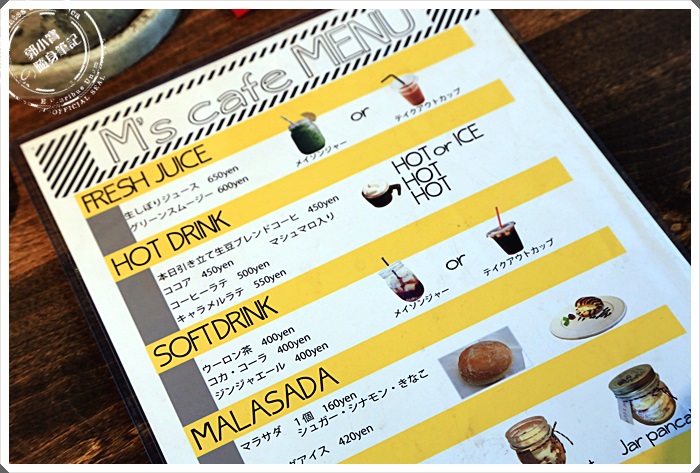 M's cafe MENU
FRESH JUICE
生しぼりジュース 650yen
グリーンスムージー 600yen
メイソンジャー
or
テイクアウトカップ
HOT DRINK
本日引き立て生豆ブレンドコーヒ 450yen
ココア 450yen マシュマロ入り
コーヒーラテ 500yen
キャラメルラテ 550yen
HOT or ICE
HOT
HOT
SOFT DRINK
ウーロン茶 400yen
コカ・コーラ 400yen
ジンジャエール 400yen
メイソンジャー
or
テイクアウトカップ
MALASADA
マラサダ 1個 160yen
シュガー・シナモン・きなこ
ダアイス 420yen
Jar panca
郭小寶
隨身筆記
OFFICIAL SEAL